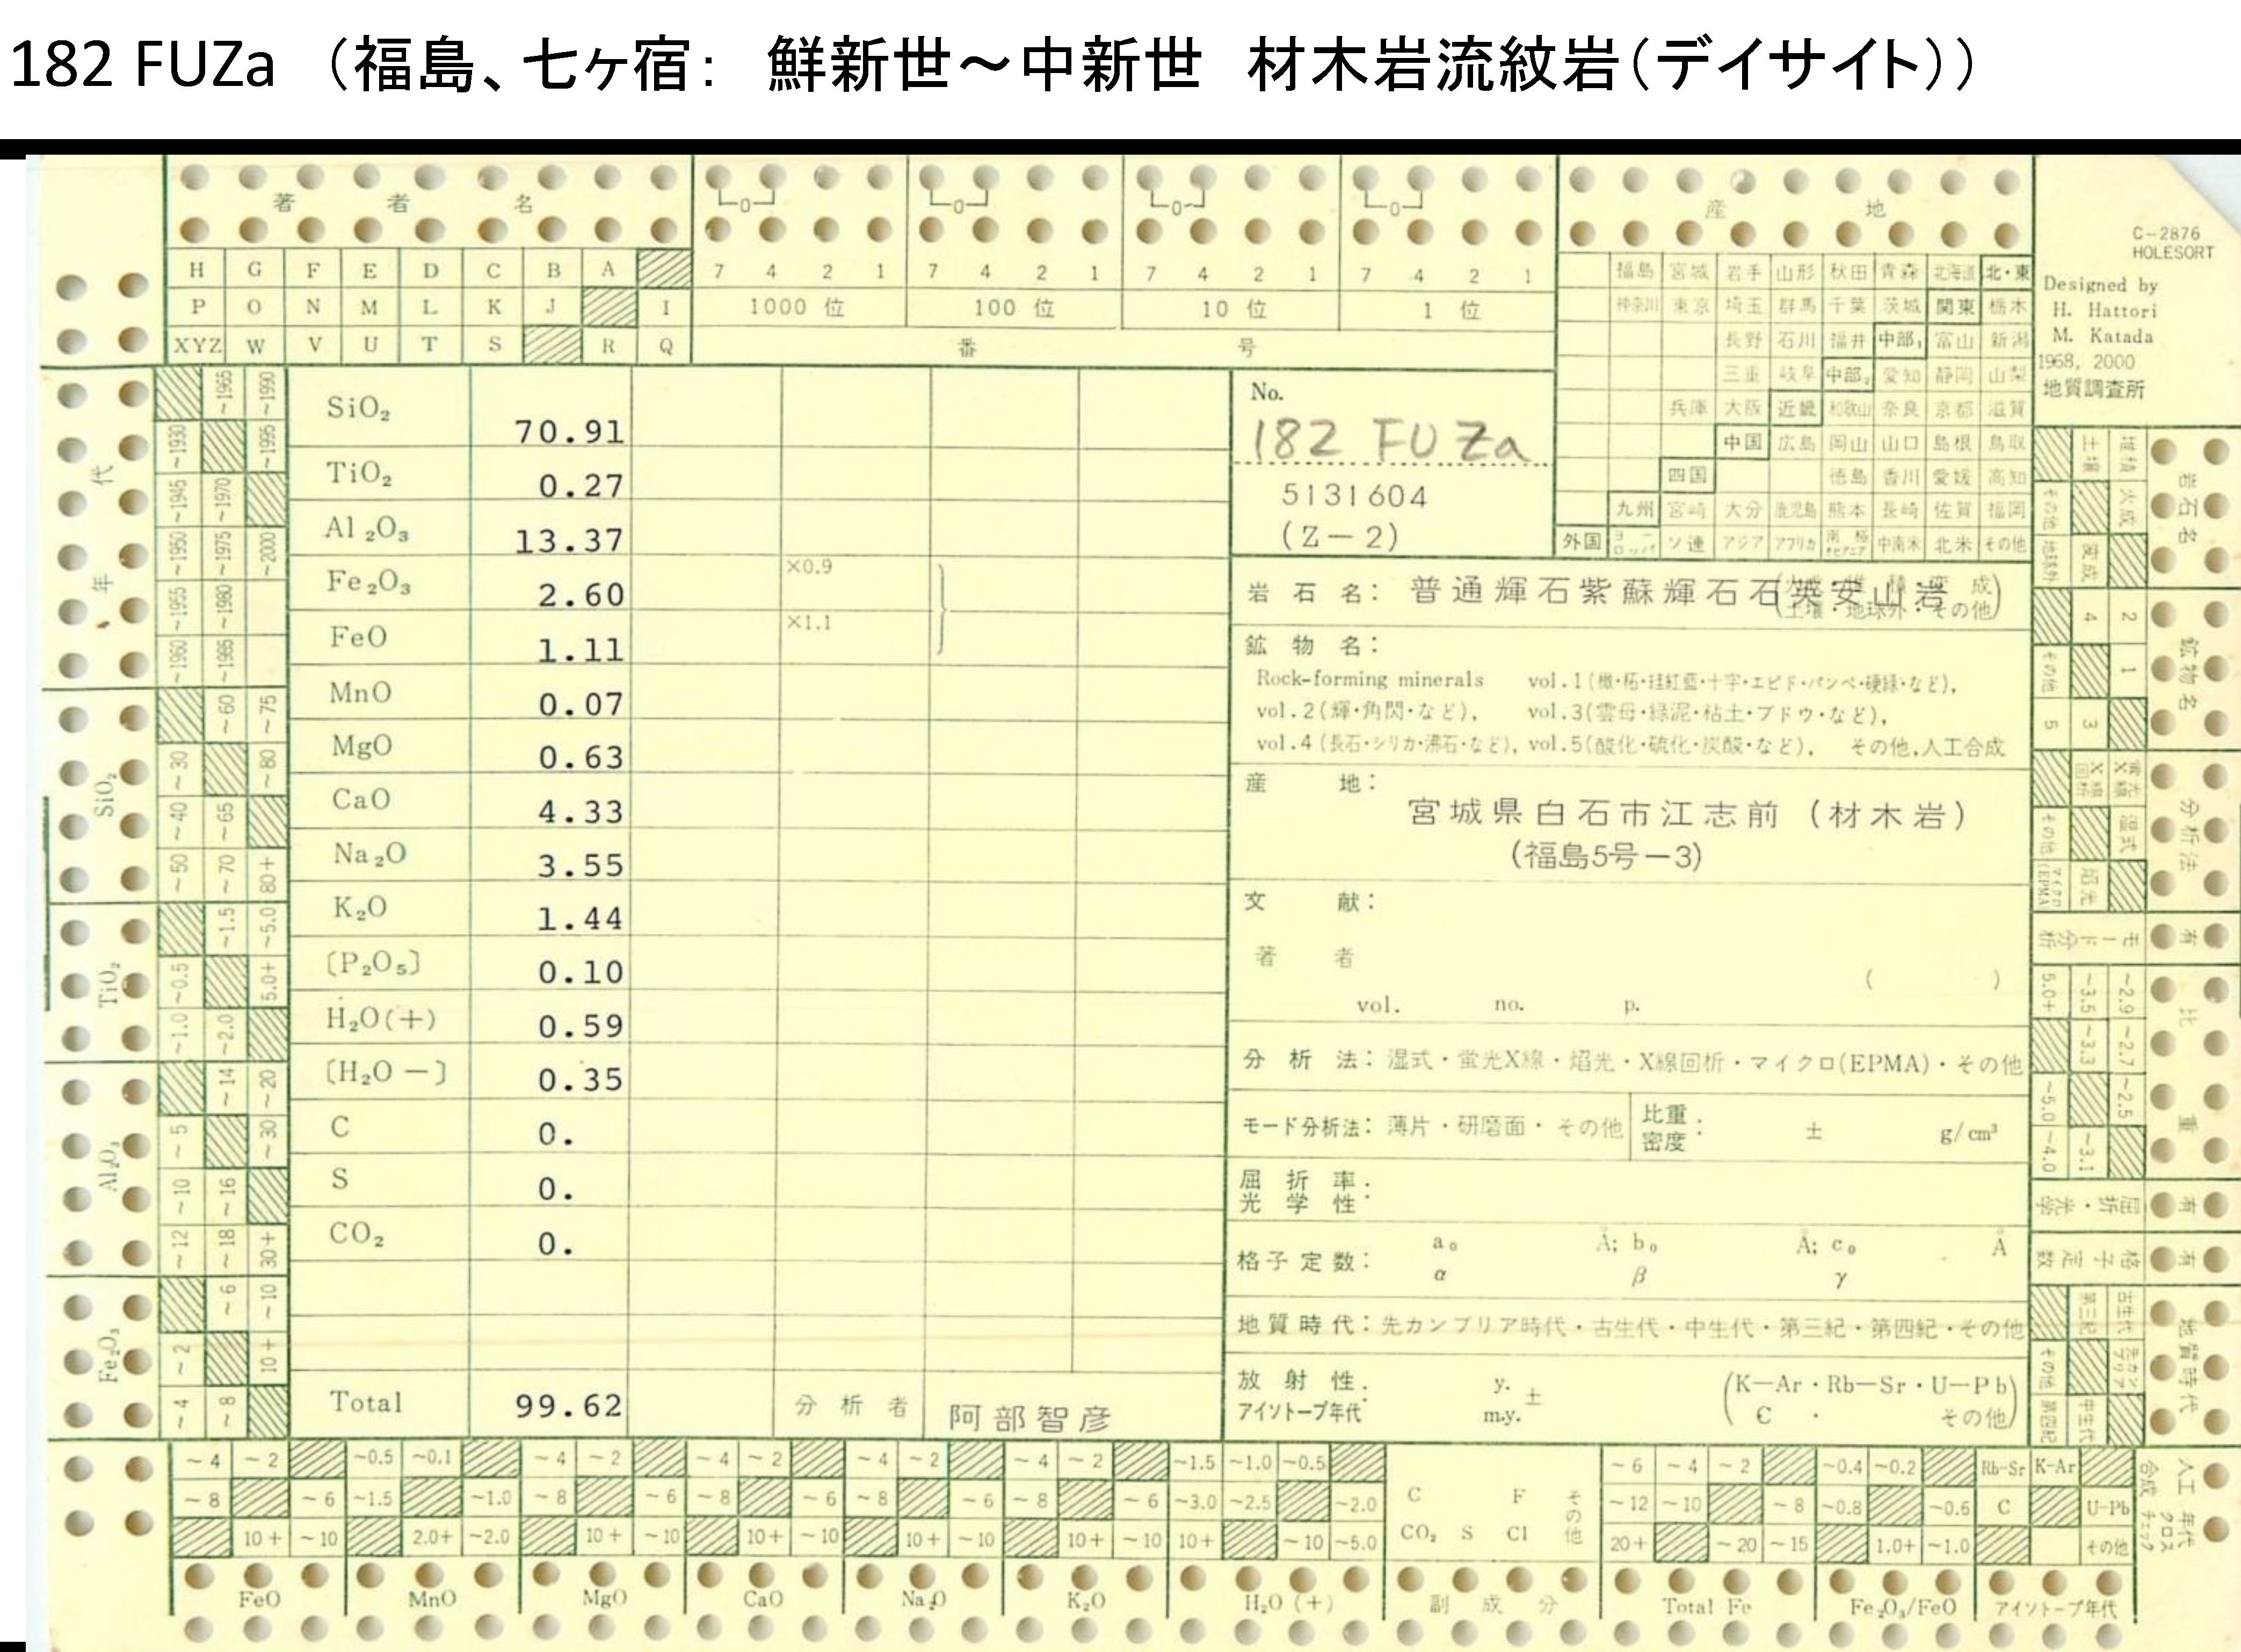 182 FUZa （福島、七ヶ宿： 鮮新世～中新世 材木岩流紋岩（デイサイト））
著 者 名
0 0 0 0
産 地
C-2876
HOLESORT
Designed by
H. Hattori
M. Katada
1968, 2000
地質調査所
H G F E D C B A
P O N M L K J I
XYZ W V U T S R Q
7 4 2 1 7 4 2 1 7 4 2 1 7 4 2 1
1000 位 100 位 10 位 1 位
番 号
福島 宮城 岩手 山形 秋田 青森 北海道 北・東
神奈川 東京 埼玉 群馬 千葉 茨城 関東 栃木
長野 石川 福井 中部₁ 富山 新潟
三重 岐阜 中部₂ 愛知 静岡 山梨
兵庫 大阪 近畿 和歌山 奈良 京都 滋賀
中国 広島 岡山 山口 島根 鳥取
四国 徳島 香川 愛媛 高知
九州 宮崎 大分 鹿児島 熊本 長崎 佐賀 福岡
外国 ヨーロッパ ソ連 アジア アフリカ 中南米 北米 その他
No.
182 FUZa
5131604
(Z-2)
SiO₂ 70.91
TiO₂ 0.27
Al₂O₃ 13.37
Fe₂O₃ 2.60 ×0.9
FeO 1.11 ×1.1
MnO 0.07
MgO 0.63
CaO 4.33
Na₂O 3.55
K₂O 1.44
〔P₂O₅〕 0.10
H₂O(+) 0.59
〔H₂O－〕 0.35
C 0.
S 0.
CO₂ 0.
Total 99.62 分析者 阿部智彦
岩 石 名： 普通輝石紫蘇輝石石英安山岩
土壌・地球外・その他
鉱 物 名：
Rock-forming minerals vol.1(橄・柘・珪紅藍・十字・エピド・パンペ・硬緑・など),
vol.2(輝・角閃・など), vol.3(雲母・緑泥・粘土・ブドウ・など),
vol.4(長石・シリカ・沸石・など), vol.5(酸化・硫化・炭酸・など), その他,人工合成
産 地：
宮城県白石市江志前（材木岩）
(福島5号－3)
文 献：
著 者
( )
vol. no. p.
分 析 法：湿式・蛍光X線・焰光・X線回析・マイクロ(EPMA)・その他
モード分析法：薄片・研磨面・その他 比重 密度： ± g/cm³
屈 折 率
光 学 性：
格子定数： a₀ Å; b₀ Å; c₀ Å
α β γ
地質時代：先カンブリア時代・古生代・中生代・第三紀・第四紀・その他
放 射 性 y. ± (K-Ar・Rb-Sr・U-Pb
アイソトープ年代 m.y. C ・ その他)
年 代
~1965 ~1990
~1930 ~1995
~1945 ~1970
~1950 ~1975 ~2000
~1955 ~1980
~1960 ~1985
SiO₂
~60 ~75
~30 ~80
~40 ~65
~50 ~70 80+
TiO₂
~1.5 ~5.0
~0.5 5.0+
~1.0 ~2.0
Al₂O₃
~14 ~20
~5 ~30
~10 ~16
~12 ~18 30+
Fe₂O₃
~6 ~10
~2 10+
~4 ~8
岩石名
土壌 堆積
その他 火成
地球外 変成
鉱物名
4 2
その他 1
5 3
分析法
X線回析 蛍光X線
その他 湿式
マイクロ(EPMA) 焰光
モード分析 有
比 重
5.0+ ~3.5 ~2.9
~3.3 ~2.7
~5.0 ~2.5
~4.0 ~3.1
屈折・光学 有
格子定数 有
地質時代
第三紀 古生代
その他 先カンブリア
第四紀 中生代
~4 ~2 ~0.5 ~0.1 ~4 ~2 ~4 ~2 ~4 ~2 ~4 ~2 ~1.5 ~1.0 ~0.5 ~6 ~4 ~2 ~0.4 ~0.2 Rb-Sr K-Ar
~8 ~6 ~1.5 ~1.0 ~8 ~6 ~8 ~6 ~8 ~6 ~8 ~6 ~3.0 ~2.5 ~2.0 C F その他 ~12 ~10 ~8 ~0.8 ~0.6 C U-Pb
10+ ~10 2.0+ ~2.0 10+ ~10 10+ ~10 10+ ~10 10+ ~10 10+ ~10 ~5.0 CO₂ S Cl 20+ ~20 ~15 1.0+ ~1.0 その他
人工合成 年代クロスチェック
FeO MnO MgO CaO Na₂O K₂O H₂O(+) 副成分 Total Fe Fe₂O₃/FeO アイソトープ年代